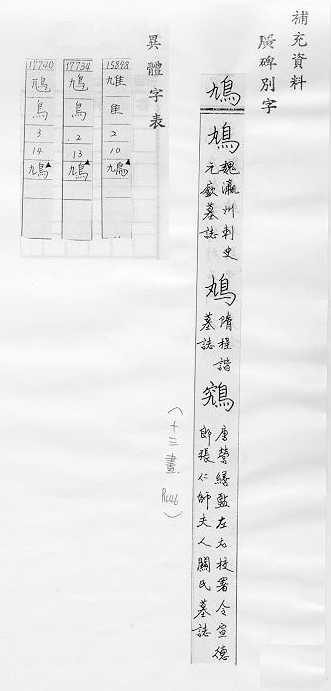 補充資料
廣碑別字
鳩
鳩 魏瀛州刺史元欽墓誌
鳩 隋程諧墓誌
鵵 唐營繕監左右校署令宣德郎張仁師夫人關氏墓誌
(十三畫 Rc46)
異體字表
15898
隹
2
10
鳩
17734
鳩
鳥
2
13
鳩
17740
鳥
3
14
鳩